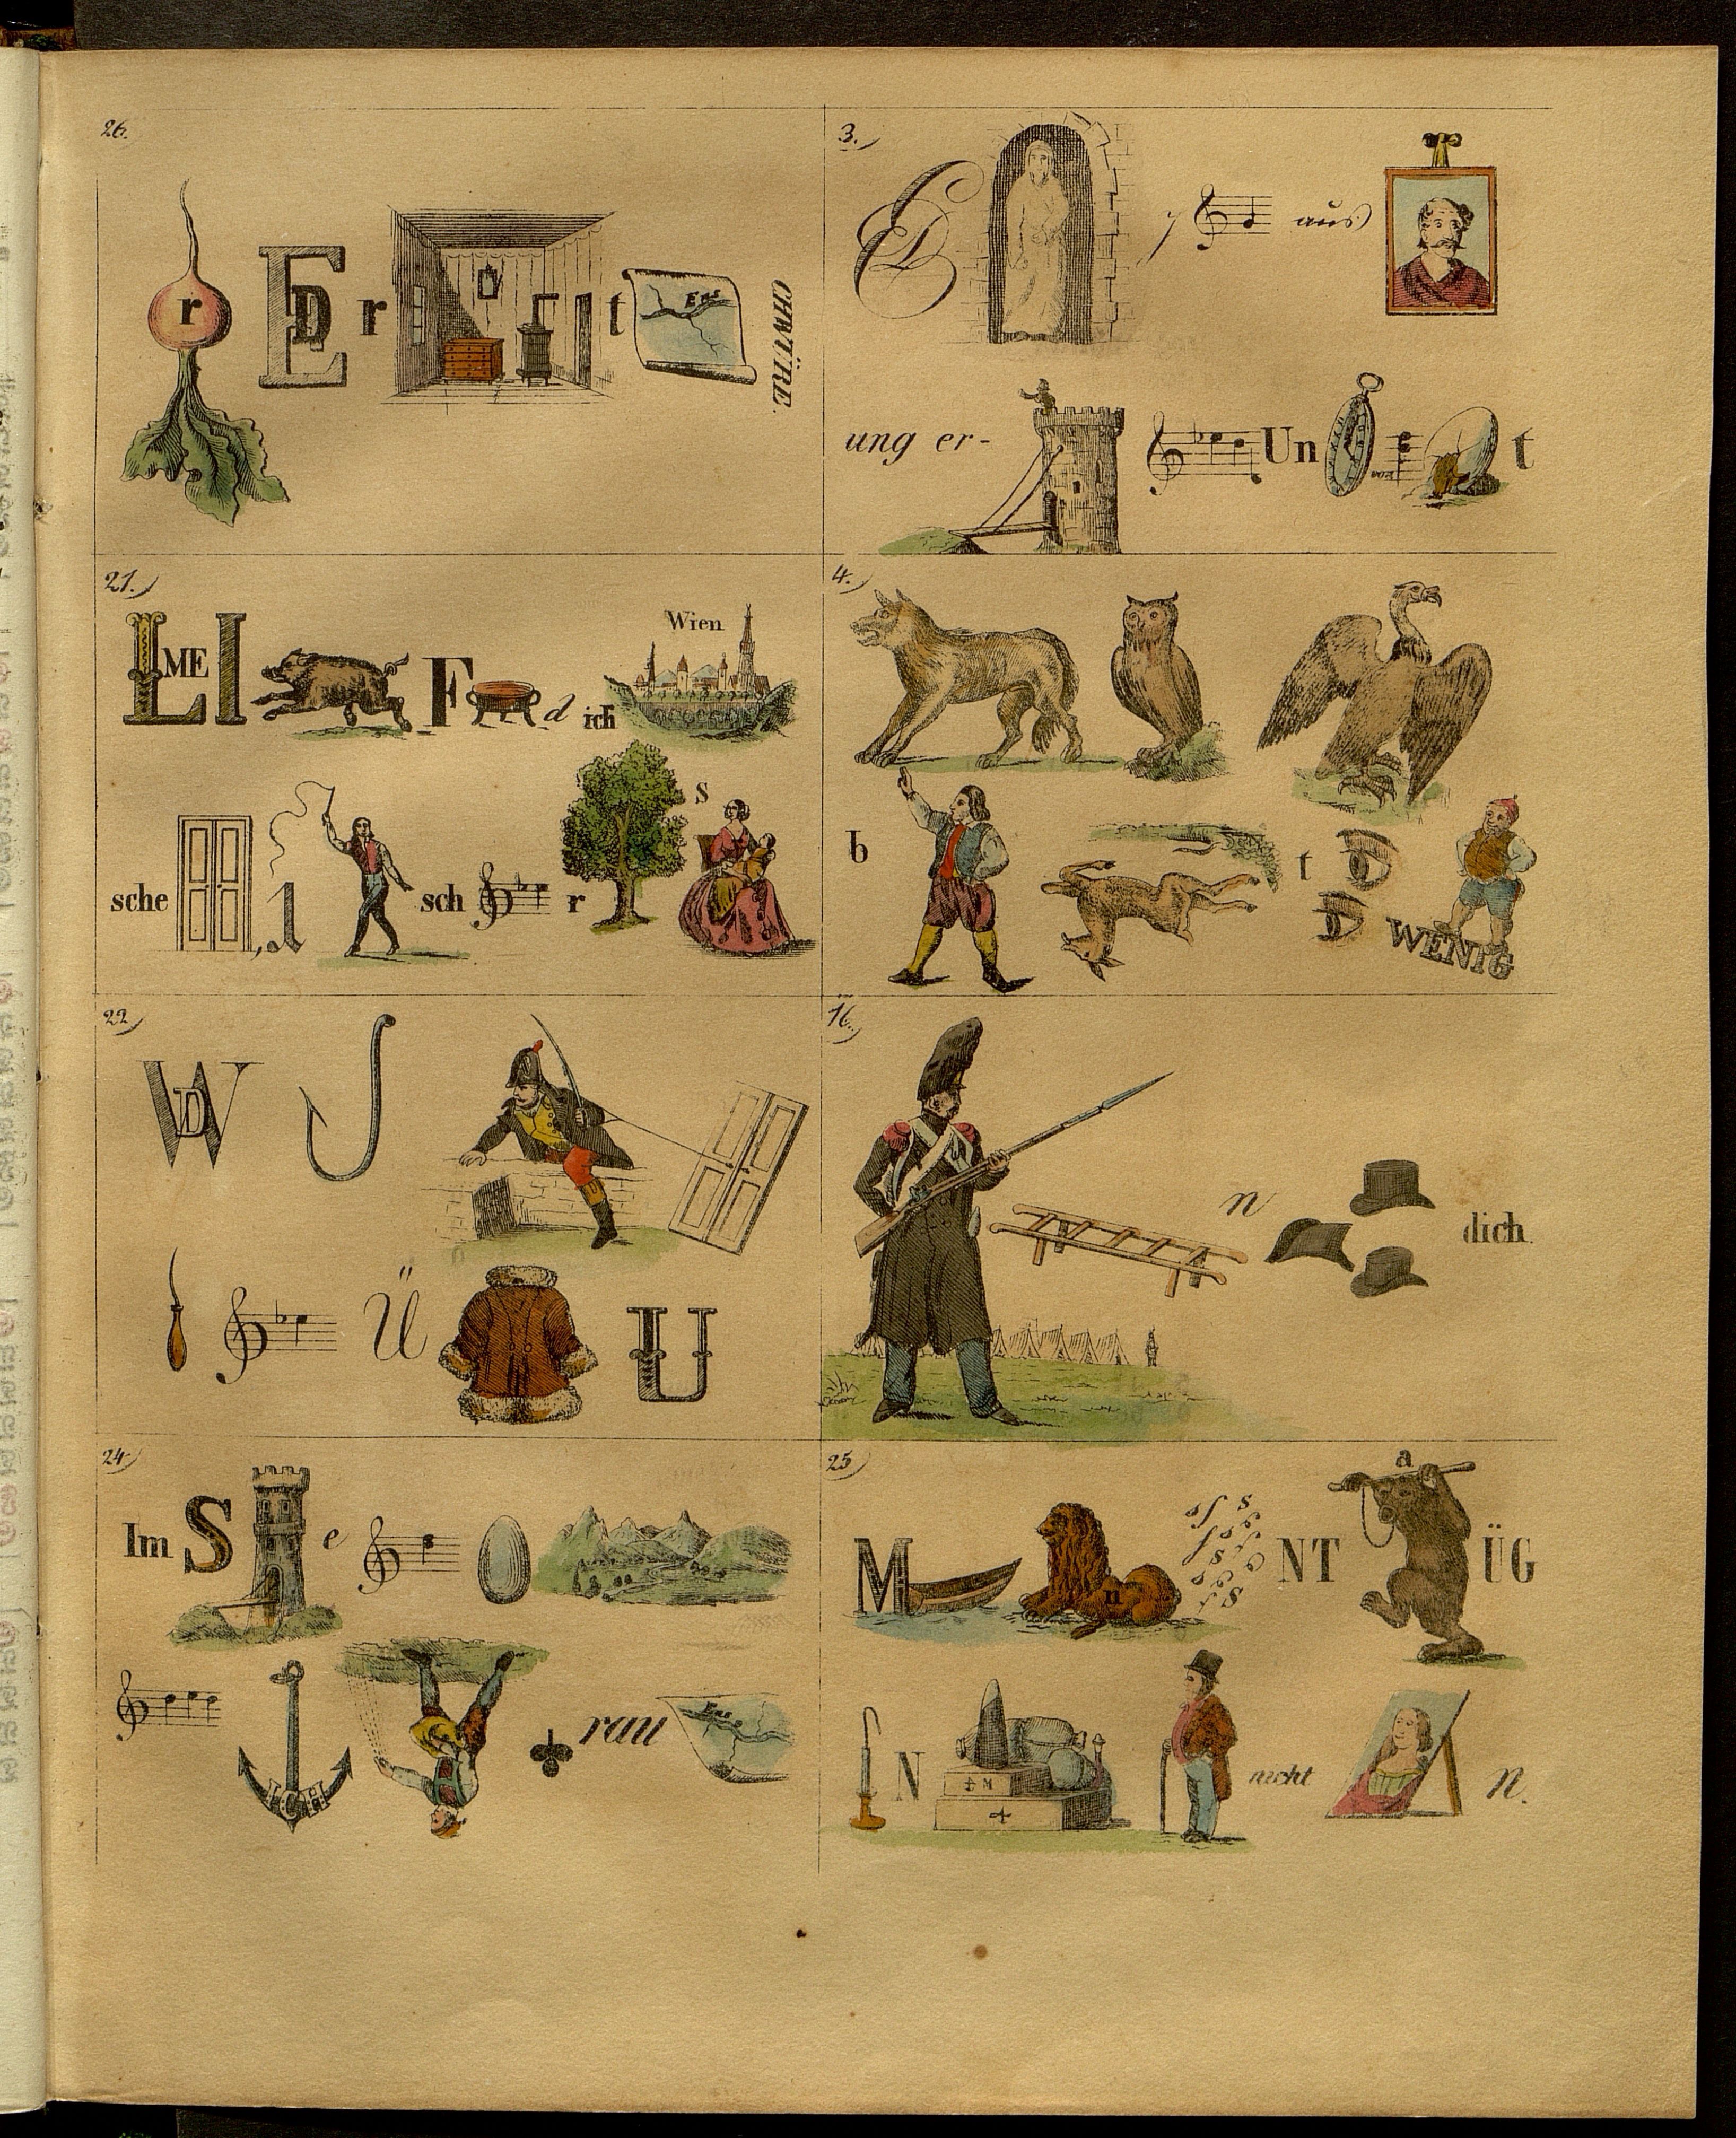 26.
r E D r t Ens CHWÜRE.
3.
E D , aus
ung er- Un t
21.
L ME I F d ich Wien
sche , i sch r s
4.
b t WENIG
22
W D J
Ü U
16.
n dich.
24
Im S e
ICH rau Ens
25
M n NT a ÜG
N ¼ M 4 nicht n.